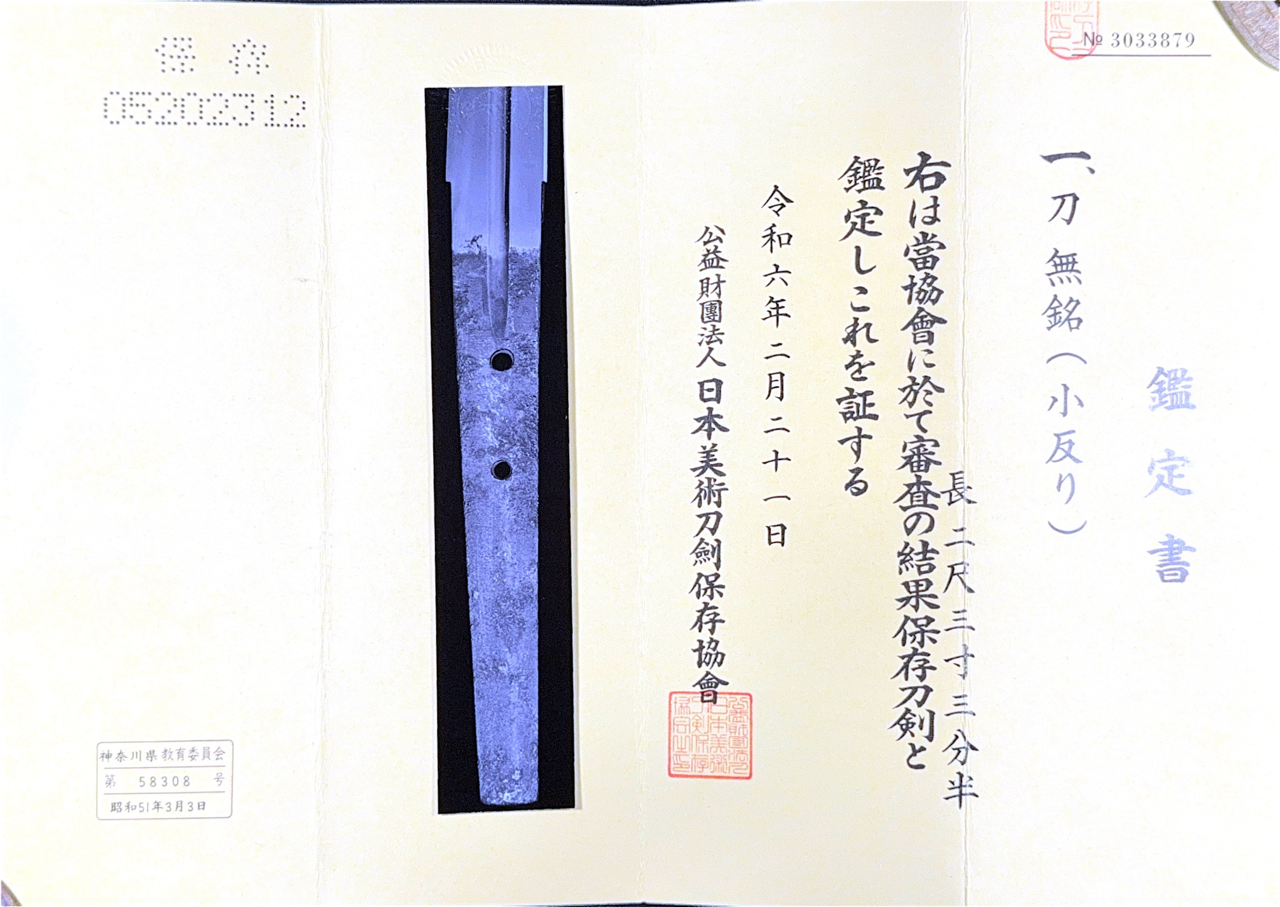 № 3033879
鑑定書
一、刀 無銘(小反り)
長 二尺三寸三分半
右は當協會に於て審査の結果保存刀剣と
鑑定しこれを証する
令和六年二月二十一日
公益財團法人 日本美術刀劍保存協會
保存
05202312
神奈川県教育委員会
第 58308 号
昭和51年3月3日